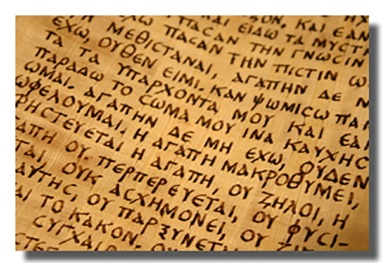 ΚΑΙ ΕΑΝ
ΚΑΙ ΕΙΔΩ ΤΑ ΜΥΣΤ
ΠΑΣΑΝ ΤΗΝ ΓΝΩΣΙΝ
ΕΧΩ ΠΑΣΑΝ ΤΗΝ ΠΙΣΤΙΝ Ω
ΜΕΘΙΣΤΑΝΑΙ, ΑΓΑΠΗΝ ΔΕ Μ
ΕΧΩ, ΟΥΘΕΝ ΕΙΜΙ. ΚΑΝ ΨΩΜΙΣΩ ΠΑΝ
ΤΑ ΤΑ ΥΠΑΡΧΟΝΤΑ ΜΟΥ ΚΑΙ ΕΑΝ
ΠΑΡΑΔΩ ΤΟ ΣΩΜΑ ΜΟΥ ΙΝΑ ΚΑΥΧΗΣ
ΩΜΑΙ, ΑΓΑΠΗΝ ΔΕ ΜΗ ΕΧΩ, ΟΥΔΕΝ
ΩΦΕΛΟΥΜΑΙ. Η ΑΓΑΠΗ ΜΑΚΡΟΘΥΜΕΙ,
ΡΗΣΤΕΥΕΤΑΙ Η ΑΓΑΠΗ, ΟΥ ΖΗΛΟΙ, Η
ΑΠΗ ΟΥ ΠΕΡΠΕΡΕΥΕΤΑΙ, ΟΥ ΦΥΣΙ-
ΤΑΙ, ΟΥΚ ΑΣΧΗΜΟΝΕΙ, ΟΥ ΖΗΤ
ΑΥΤΗΣ, ΟΥ ΠΑΡΞΥΝΕΤΑΙ
ΑΙ ΤΟ ΚΑΚΟΝ, ΟΥ
ΣΥΓΧΑΙ